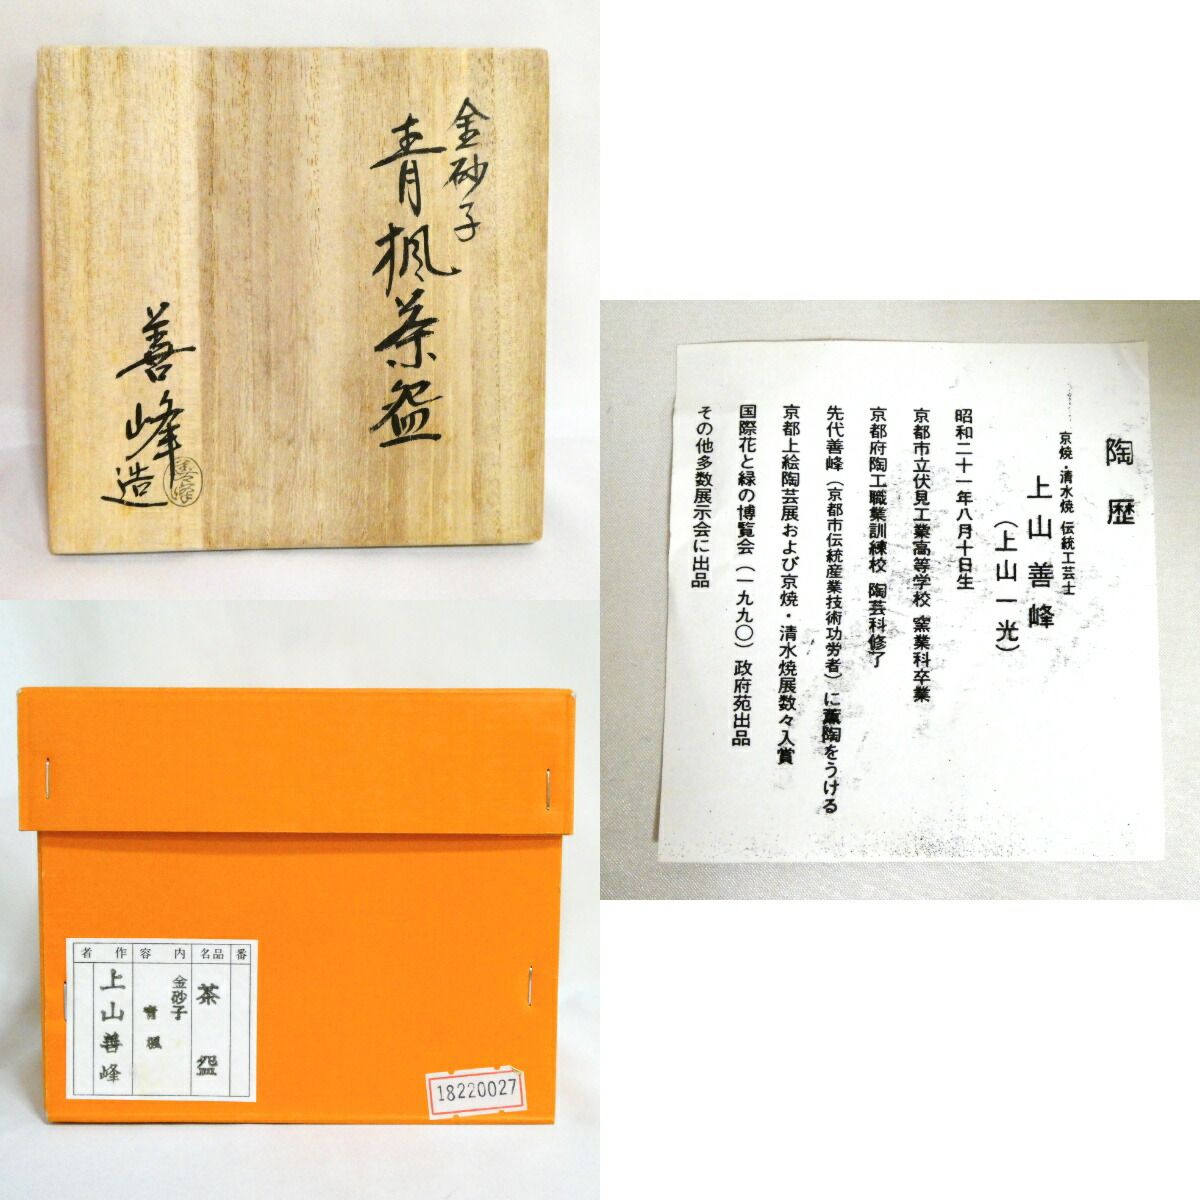 金砂子
青楓茶盌
善峰造
陶歴
京焼・清水焼 伝統工芸士
上山善峰
（上山一光）
昭和二十一年八月十日生
京都市立伏見工業高等学校 窯業科卒業
京都府陶工職業訓練校 陶芸科修了
先代善峰（京都市伝統産業技術功労者）に薫陶をうける
京都上絵陶芸展および京焼・清水焼展数々入賞
国際花と緑の博覧会（一九九〇）政府苑出品
その他多数展示会に出品
番
品名
茶盌
内容
金砂子
青楓
作者
上山善峰
18220027